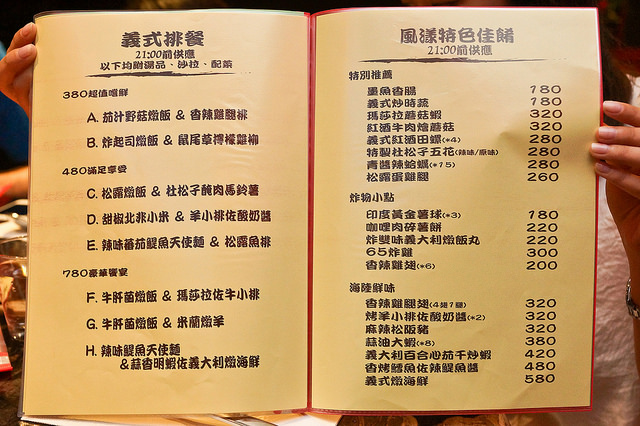 義式排餐
21:00前供應
以下均附湯品、沙拉、配菜
380超值嚐鮮
A. 茄汁野菇燉飯 & 香辣雞腿排
B. 炸起司燉飯 & 鼠尾草檸檬雞柳
480滿足享受
C. 松露燉飯 & 杜松子醃肉馬鈴薯
D. 甜椒北非小米 & 羊小排佐酸奶醬
E. 辣味番茄鯷魚天使麵 & 松露魚排
780豪華饗宴
F. 牛肝菌燉飯 & 瑪莎拉佐牛小排
G. 牛肝菌燉飯 & 米蘭燉羊
H. 辣味鯷魚天使麵
&蒜香明蝦佐義大利燉海鮮
風漾特色佳餚
21:00前供應
特別推薦
墨魚香腸 180
義式炒時蔬 180
瑪莎拉蘑菇蝦 320
紅酒牛肉燴蘑菇 320
義式紅酒田螺(*4) 280
特製杜松子五花(辣味/原味) 280
青醬辣蛤蠣(*15) 280
松露蛋雞腿 260
炸物小點
印度黃金薯球(*3) 180
咖哩肉碎薯餅 220
炸雙味義大利燉飯丸 220
65炸雞 300
香辣雞翅(*6) 200
海陸鮮味
香辣雞腿翅(4翅1腿) 320
烤羊小排佐酸奶醬(*2) 320
麻辣松阪豬 320
蒜油大蝦(*8) 380
義大利百合心茄干炒蝦 420
香烤鱈魚佐辣鯷魚醬 480
義式燉海鮮 580